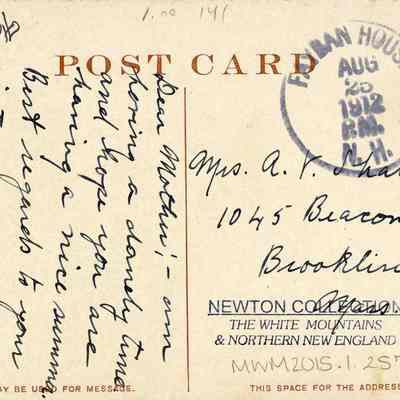 1.00 141
POST CARD
FABYAN HOUSE
AUG
25
1912
P.M.
N.H.
Dear Mother:- am
having a lovely time
and hope you are
having a nice summer.
Best regards to your
Mrs. A. V. Sha
1045 Beacon
Brookline
Mass.
NEWTON COLLECTION
THE WHITE MOUNTAINS
& NORTHERN NEW ENGLAND
MWM2015.1.257
AY BE USED FOR MESSAGE.
THIS SPACE FOR THE ADDRES